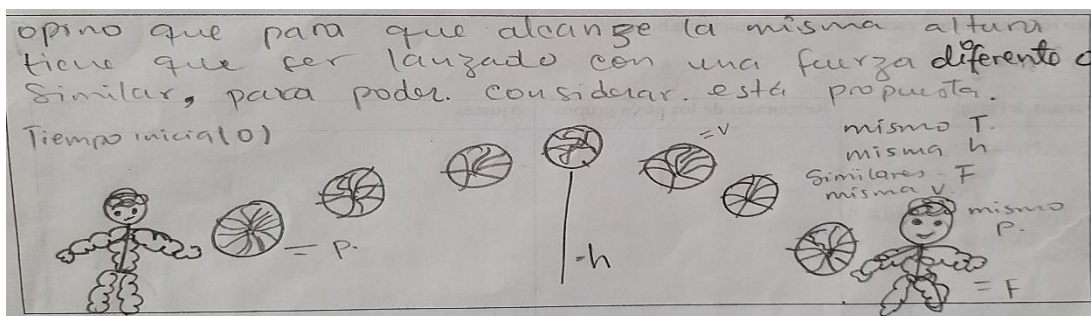 opino que para que alcanze la misma altura
tiene que ser lanzado con una fuerza diferente o
Similar, para poder. considerar. está propuesta.
Tiempo inicial (0)
= v
mismo T.
misma h
Similares F
misma v.
mismo
p.
= p.
-h
= F